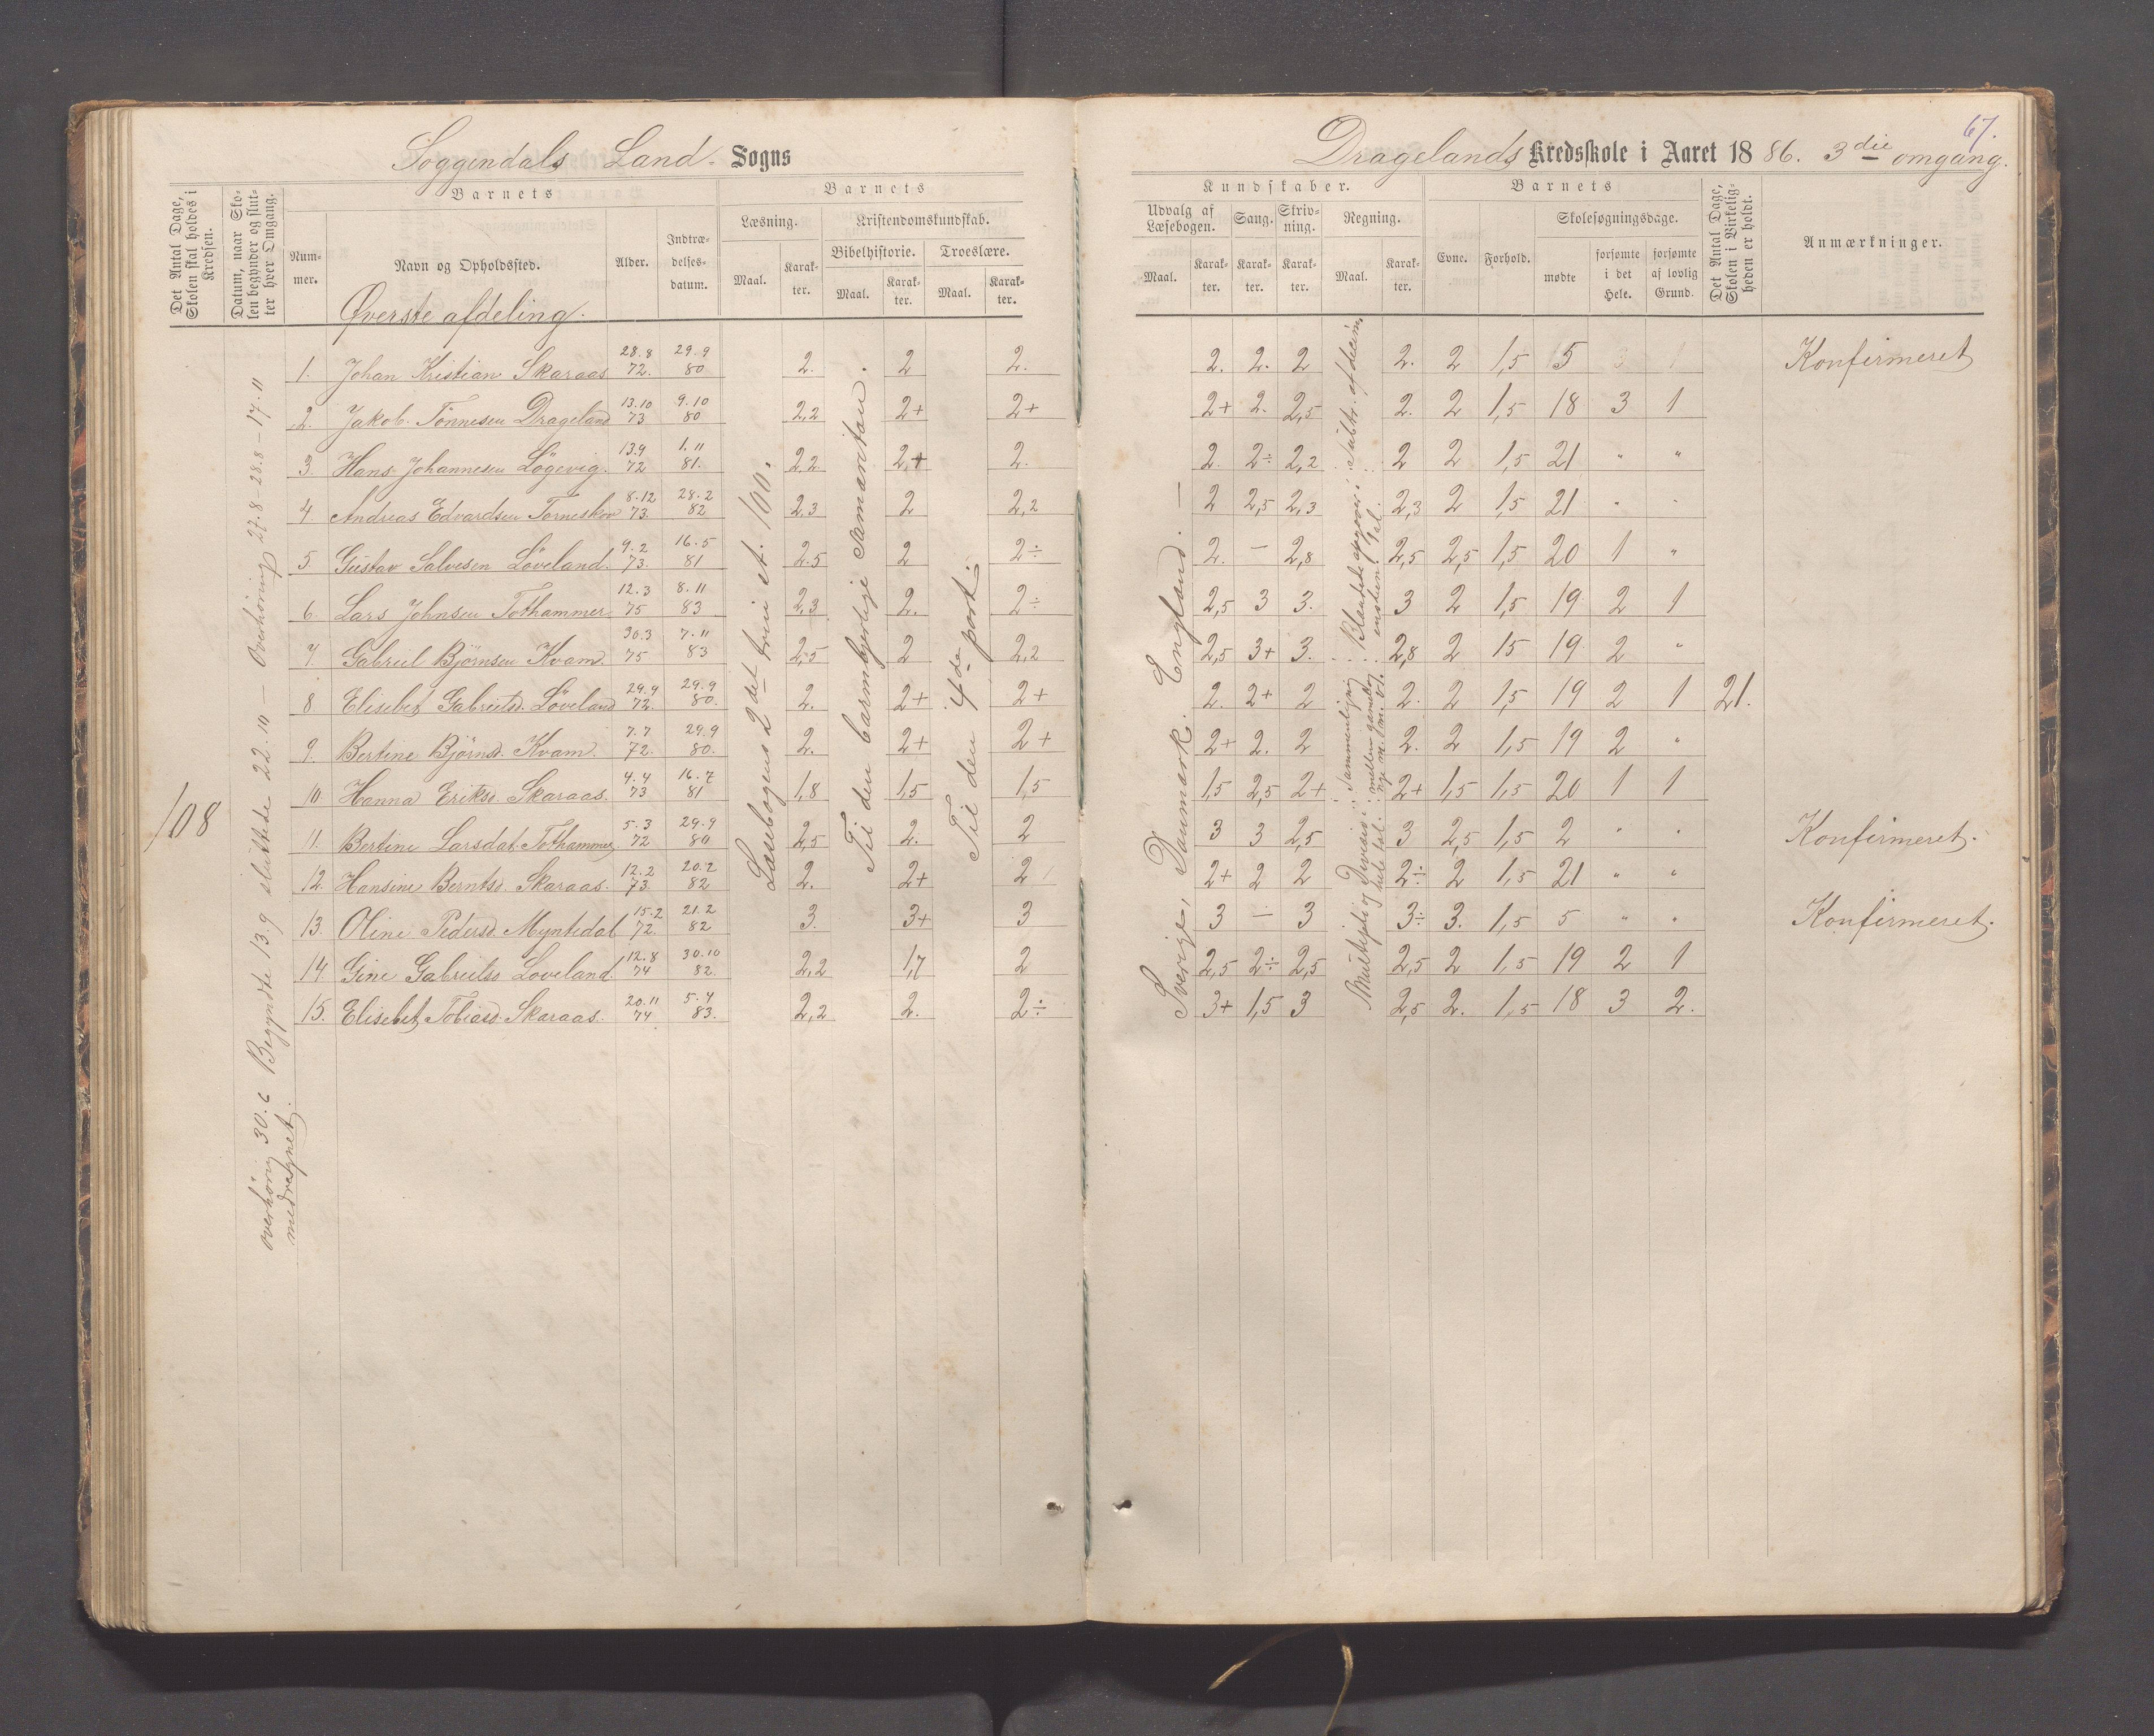 Soggendals Land- Sogns
Det Antal Dage, Skolen skal holdes i Kredsen.
Datum, naar Skolen begynder og slutter hver Omgang.
Barnets
Nummer.
Navn og Opholdssted.
Alder.
Indtrædelsesdatum.
Barnets
Læsning.
Maal.
Karakter.
Kristendomskundskab.
Bibelhistorie.
Maal.
Karakter.
Troeslære.
Maal.
Karakter.
Øverste afdeling.
1. Johan Kristian Skaraas 28.8 72. 29.9 80 2. 2 2.
2. Jakob Tönnesen Drageland 13.10 73 9.10 80 2,2 2+ 2+
3. Hans Johannesen Lögevig. 13.9 72 1.11 81. 2,2 2,+ 2.
4. Andreas Edvardsen Torneskov 8.12 73. 28.2 82 2,3 2 2,2
5. Gustav Salvesen Löveland. 9.2 73. 16.5 81 2.5 2 2÷
6. Lars Johnsen Tothammer 12.3 75 8.11 83 2,3 2. 2÷
7. Gabriel Björnsen Kvam. 30.3 75 7.11 83 2,5 2 2,2
8 Elisebet Gabrielsd. Löveland 29.9 72. 29.9 80. 2. 2+ 2+
9. Bertine Björnsd. Kvam. 7.7 72. 29.9 80. 2. 2+ 2+
10. Hanna Eriksd. Skaraas. 4.4 73 16.7 81 1,8 1,5 1,5
11. Bertine Larsdat. Tothammer. 5.3 72 29.9 80 2,5 2. 2
12. Hansine Berntsd. Skaraas. 12.2 73. 20.2 82 2. 2+ 2
13. Oline Pedersd. Myntedal 15.2 72. 21.2 82 3. 3+ 3
14. Gine Gabrielsd Loveland. 12.8 74 30.10 82. 2,2 1,7 2
15. Elisebet Tobiasd. Skaraas. 20.11 74 5.4 83. 2,2 2. 2÷
108
overhöring 30.6 Begyndte 13.9 sluttede 22.10 – Overhöring 27.8 – 28.8 – 17.11
medregnet.
Læsebogens 2det trin A. 100.
Til den barmhjertige Samaritan.
Til den 4de part.
67.
Dragelands Kredsskole i Aaret 1886. 3die omgang.
Kundskaber.
Udvalg af Læsebogen.
Maal.
Karakter.
Sang.
Karakter.
Skrivning.
Karakter.
Regning.
Maal.
Karakter.
Barnets
Evne.
Forhold.
Skolesøgningsdage.
mødte
forsømte i det Hele.
forsømte af lovlig Grund.
Det Antal Dage, Skolen i Virkeligheden er holdt.
Anmærkninger.
2. 2. 2 2. 2 1,5 5 3 1 Konfirmeret
2+ 2. 2,5 2. 2 1,5 18 3 1
2. 2÷ 2,2 2 2 1,5 21 " "
2 2,5 2,3 2,3 2 1,5 21 " "
2. – 2,8 2,5 2,5 1,5 20 1 "
2,5 3 3. 3 2 1,5 19 2 1
2,5 3+ 3. 2,8 2 15 19 2 "
2. 2+ 2 2. 2 1,5 19 2 1 21.
2+ 2. 2 2. 2 1,5 19 2 "
1,5 2,5 2+ 2+ 1,5 1,5 20 1 1
3 3 2,5 3 2,5 1,5 2 " " Konfirmeret.
2+ 2 2 2÷ 2 1,5 21 " "
3 – 3 3÷ 3. 1,5 5 " " Konfirmeret.
2,5 2÷ 2,5 2,5 2 1,5 19 2 1
3+ 1,5 3 2,5 2. 1,5 18 3 2.
Sverige, Danmark. England. –
Multipli og Division i hele tal. Sammenligning mellem gammelt og nye m. m. v.
Blandede opgaver i subtr. af decim.